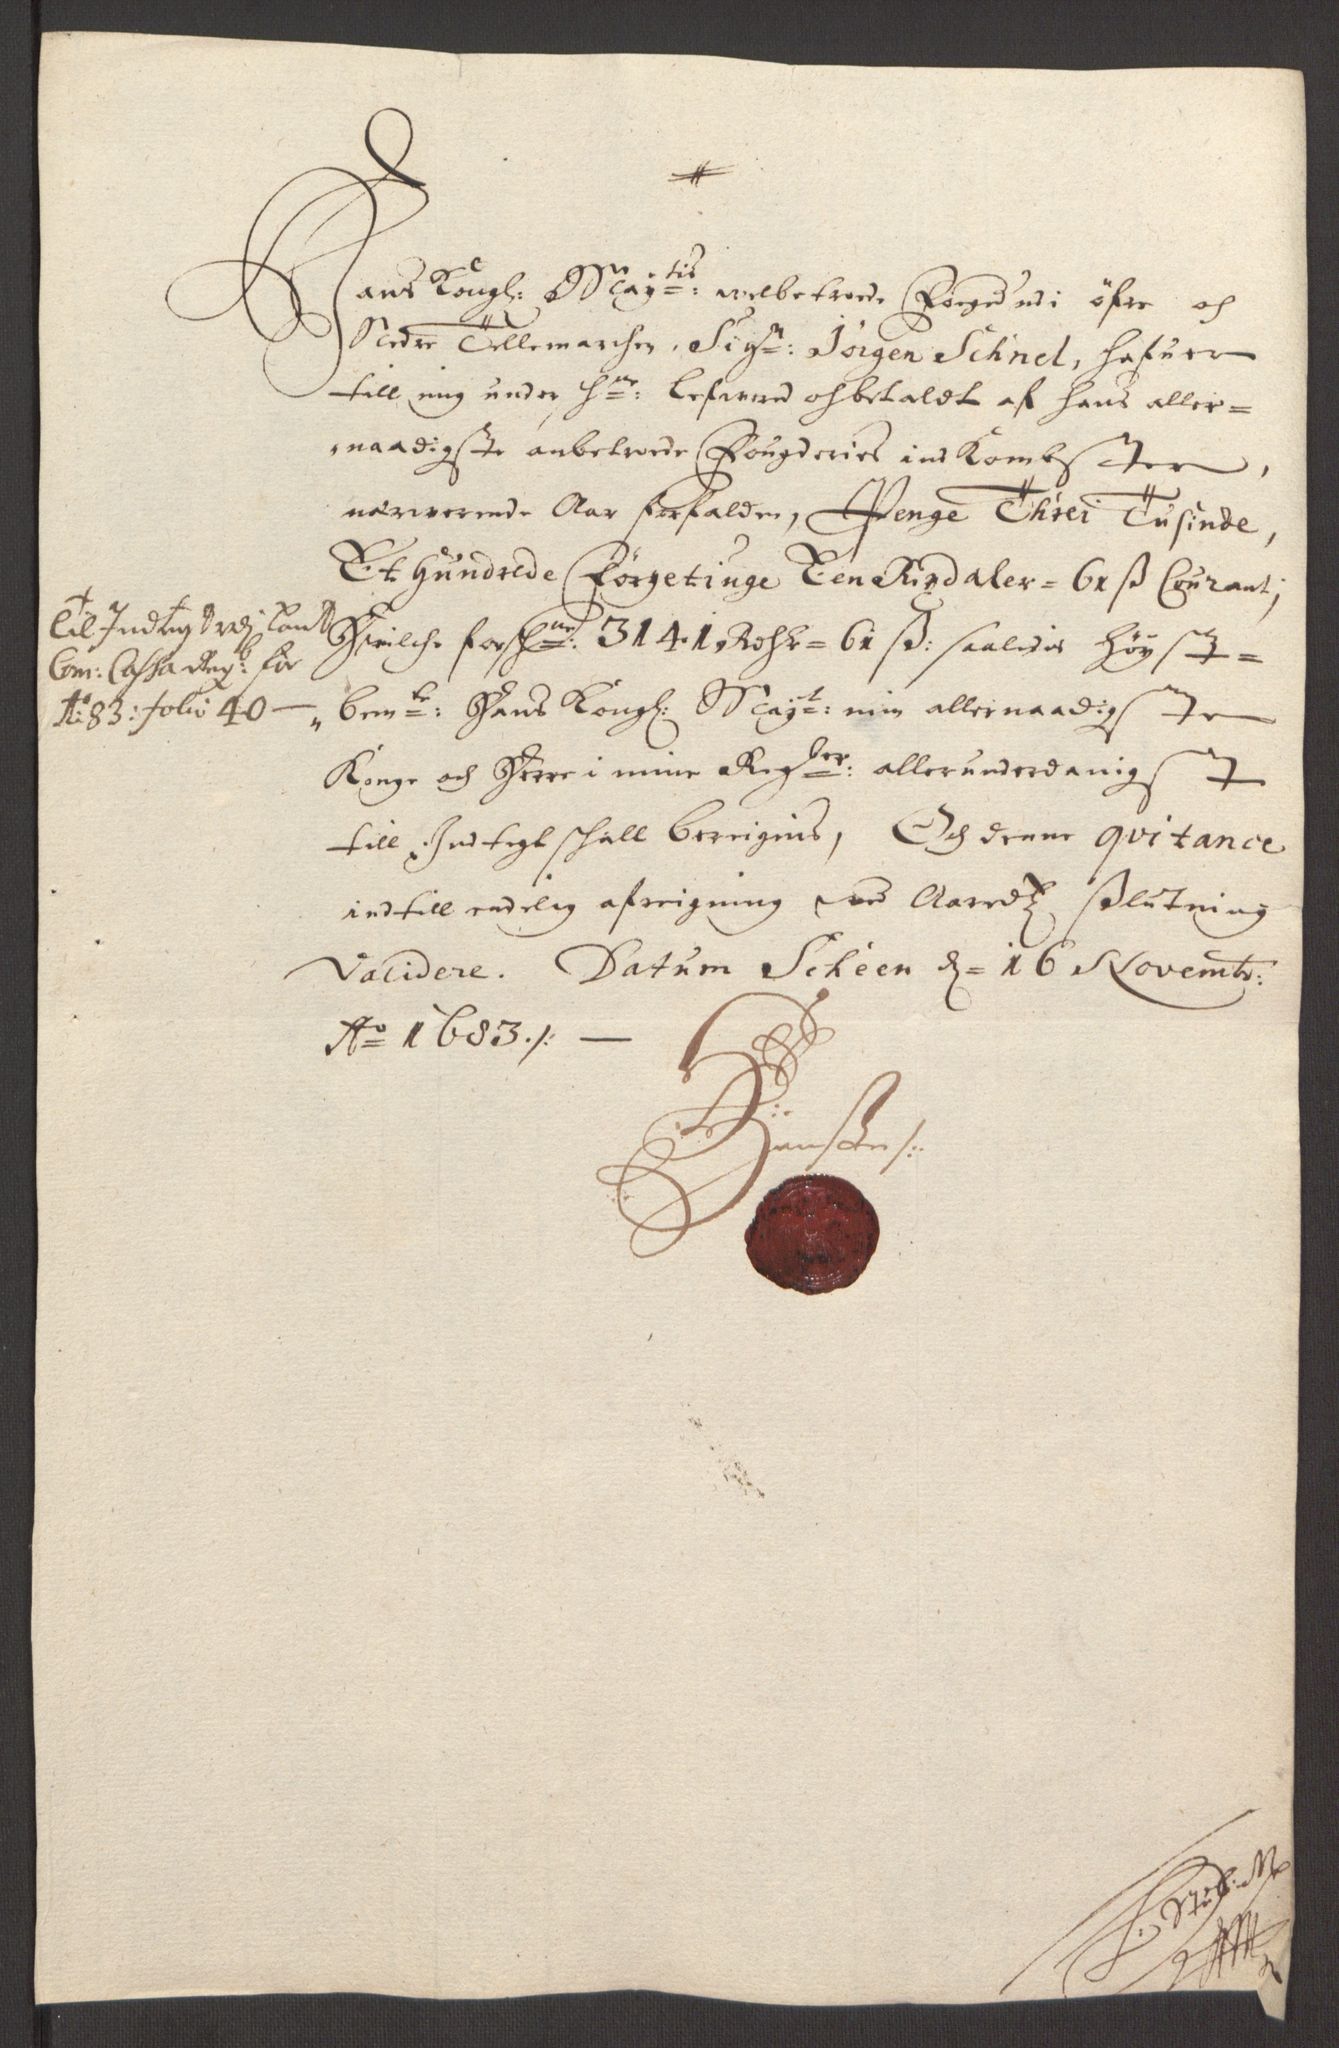 Hans Kongl: Maytis: welbetroede Foeged udi öfre och
Nedre Tellemarchen, Sigr: Jörgen Schnel, hafuer
till mig under hne: lefwerred och betaldt af hans aller=
naadigste anbetroede Fougderies ind Kombster,
nærwerende Aar forfalden, Penge Threi Tusinde,
Et Hundrede Förgetiuge Een Rixdaler= 61 ß Courant;
Hwilche forschne: 3141 Rdhr= 61 ß: saaledis höyst=
bemte: Hans Kongl: Mayt: min allernaadigste
Konge och Herre i mine Regber: allerunderdanigst
till Indtegt schall bereignis, Och denne qvitance
indtill endelig afreigning ved Aaredtz slutning
Validere. Datum Scheen d= 16 Novembr:
Ao 1683 ./: —
Til Indtegt udj Land
Com: Cassa Regb: for
Ao: 83: folio 40 —